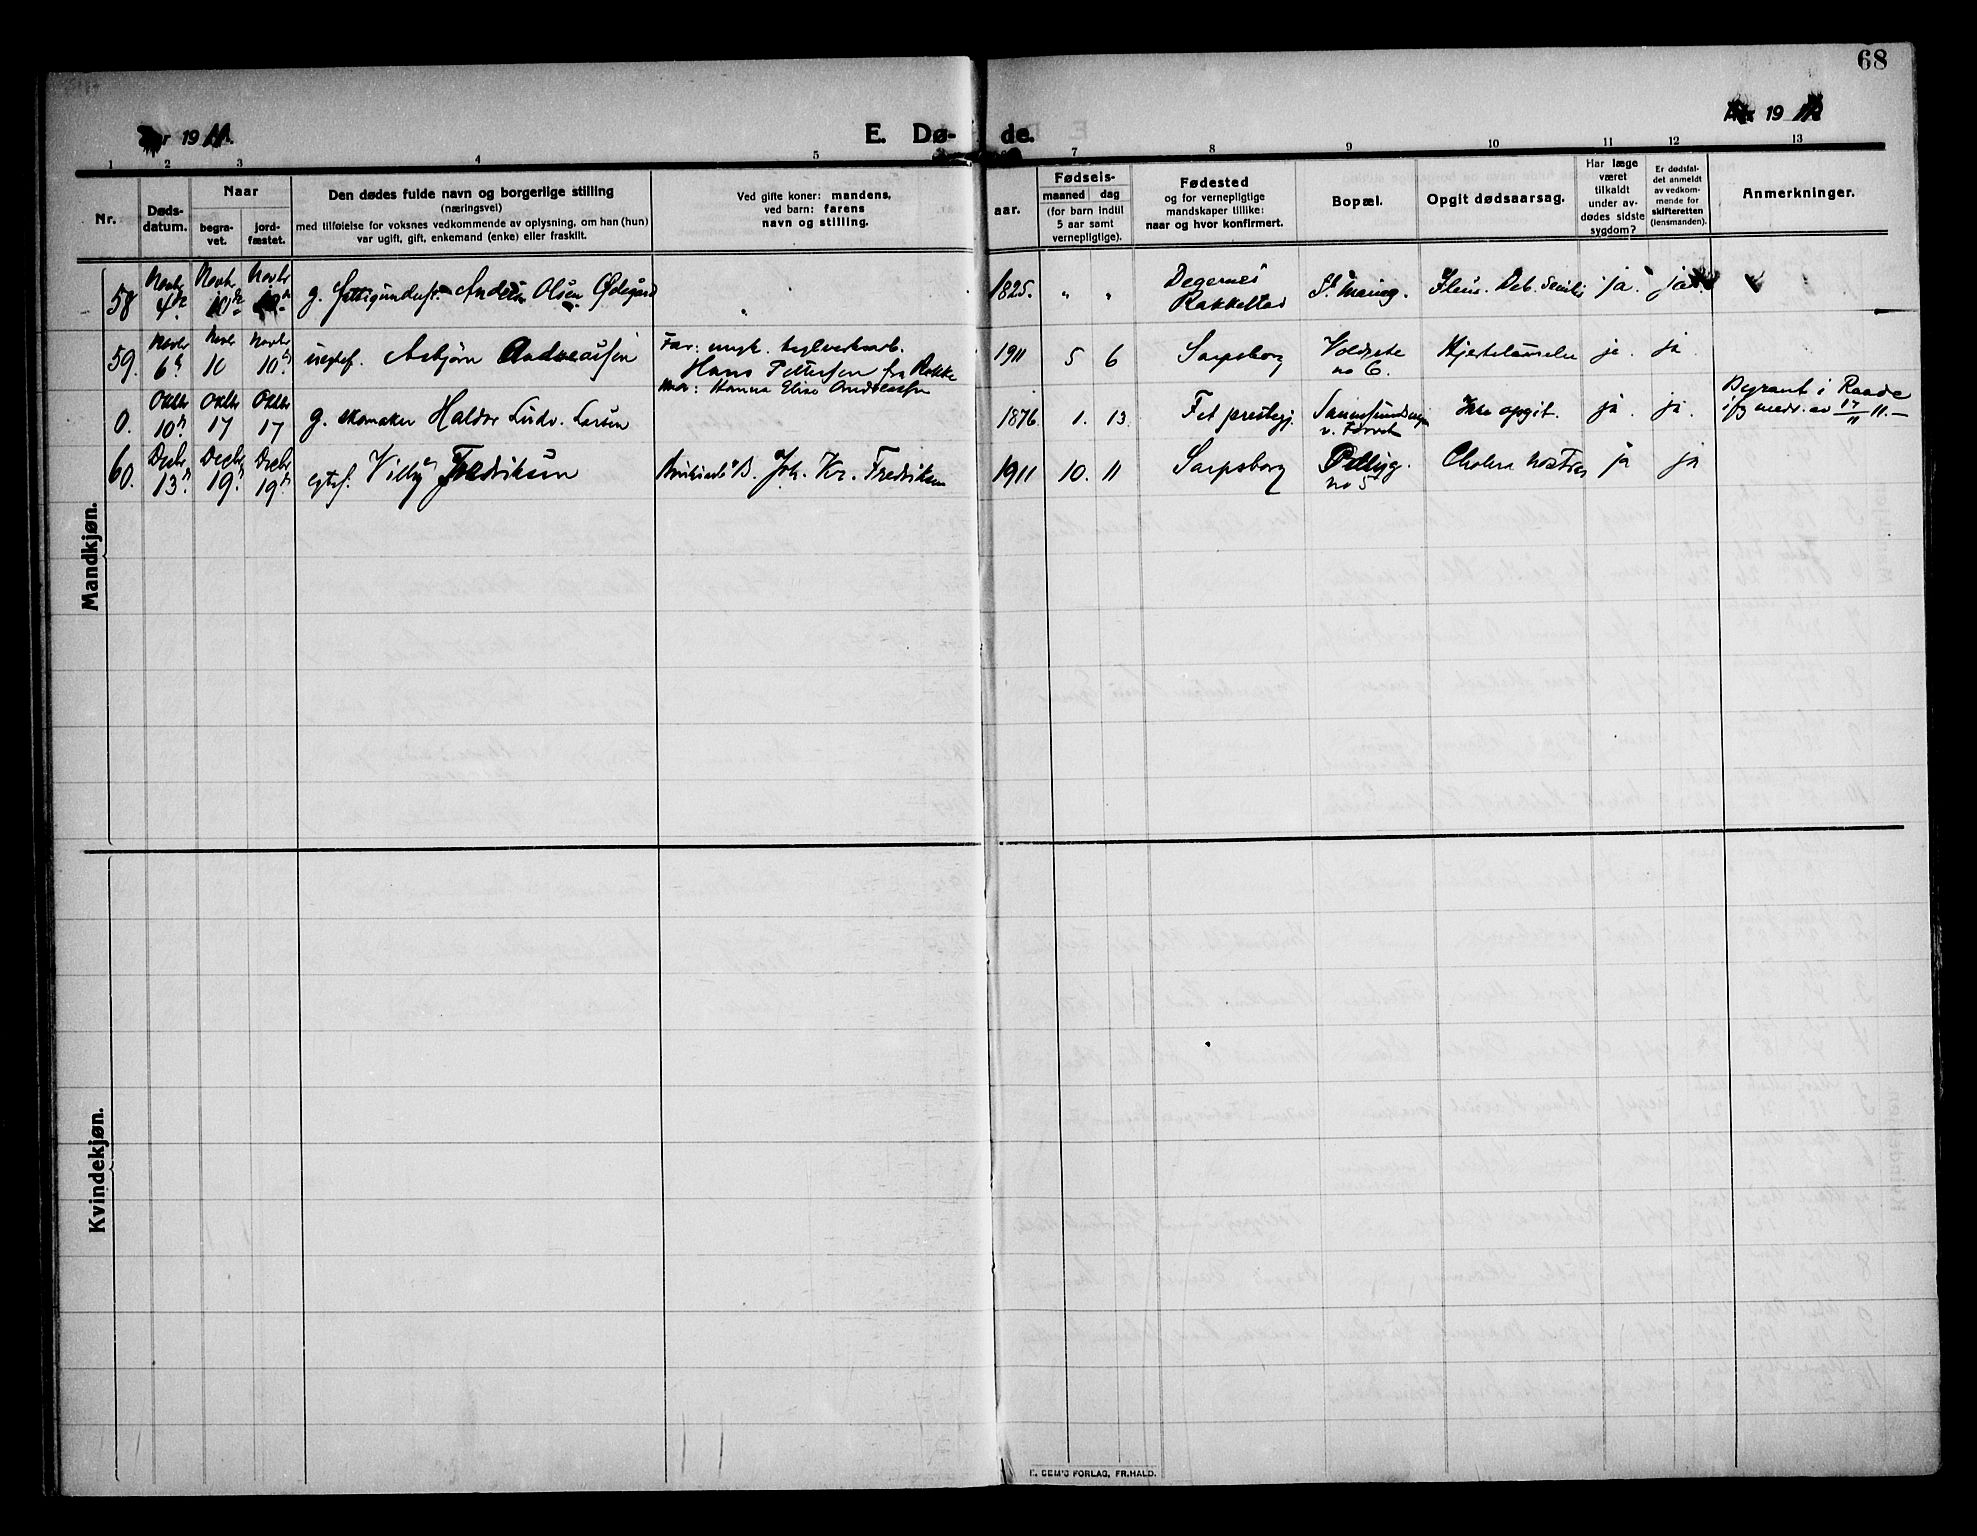 68
19 11.
E. Dø- de.
19
1 2 3 4 5 7 8 9 10 11 12 13
Nr.
Døds-
datum.
Naar
begra-
vet.
jord-
fæstet.
Den dødes fulde navn og borgerlige stilling
(næringsvei)
med tilføielse for voksnes vedkommende av oplysning, om han (hun)
var ugift, gift, enkemand (enke) eller fraskilt.
Ved gifte koner: mandens,
ved barn: farens
navn og stilling.
aar.
Fødsels-
maaned dag
(for barn indtil
5 aar samt
vernepligtige).
Fødested
og for vernepligtige
mandskaper tillike:
naar og hvor konfirmert.
Bopæl.
Opgit dødsaarsag.
Har læge
været
tilkaldt
under av-
dødes sidste
sygdom?
Er dødsfal-
det anmeldt
av vedkom-
mende for
skifteretten
(lensmanden).
Anmerkninger.
Mandkjøn.
58 Novbr 4de Novbr 10de Novbr g. Anders Olsen Ødegård 1825. " " Degernes Rakkestad St. Marieg. Deb. senilis ja. ja.
59. Novbr 6te Novbr 10 Novbr 10de uegtef. Asbjørn Andreassen
Far: ungk. teglverksarb.
Hans Pettersen fra Rokke
Mor: Hanna Elise Andreassen
1911 5 6 Sarpsborg no 6. Hjertelammelse ja. ja.
0. Oktbr 10de Oktbr 17 Oktbr 17 g. skomaker Haldor Ludv. Larsen 1876. 1. 13. Fet prestegj. v. Torvet Ikke opgit. ja. ja.
Begravet i Raade
ifg. medd. av 17/11 11.—
60. Decbr 13de Decbr 19de Decbr 19de egtef. Villy Fredriksen Joh. Kr. Fredriksen 1911 10. 11 Sarpsborg no 5 Cholera nostras ja ja
Kvindekjøn.
E. SEM'S FORLAG, FR.HALD.